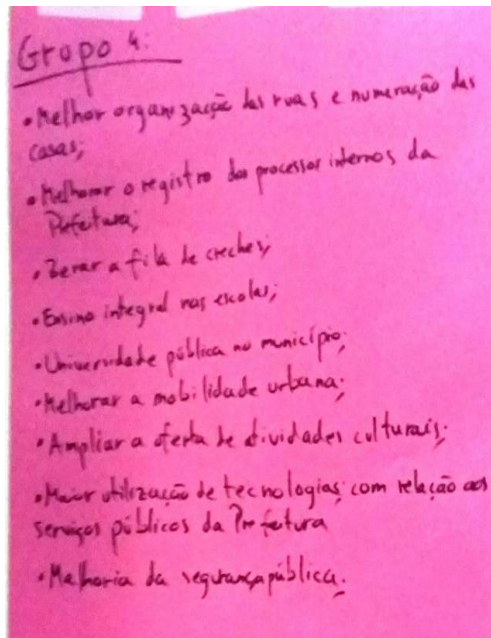 Grupo 4:
• Melhor organização das ruas e numeração das
casas;
• Melhorar o registro dos processos internos da
Prefeitura;
• Zerar a fila de creches;
• Ensino integral nas escolas;
• Universidade pública no município;
• Melhorar a mobilidade urbana;
• Ampliar a oferta de atividades culturais;
• Maior utilização de tecnologias, com relação aos
serviços públicos da Prefeitura
• Melhoria da segurança pública.